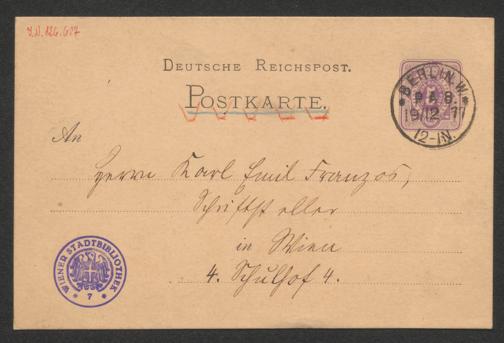 I.N. 126.607
DEUTSCHE REICHSPOST.
POSTKARTE.
BERLIN. W.
P. A. 8.
19/12 77
12-1N.
An
Herrn Karl Emil Franzos,
Schriftsteller
in Wien
4. Schulhof 4.
WIENER STADTBIBLIOTHEK
* 7 *